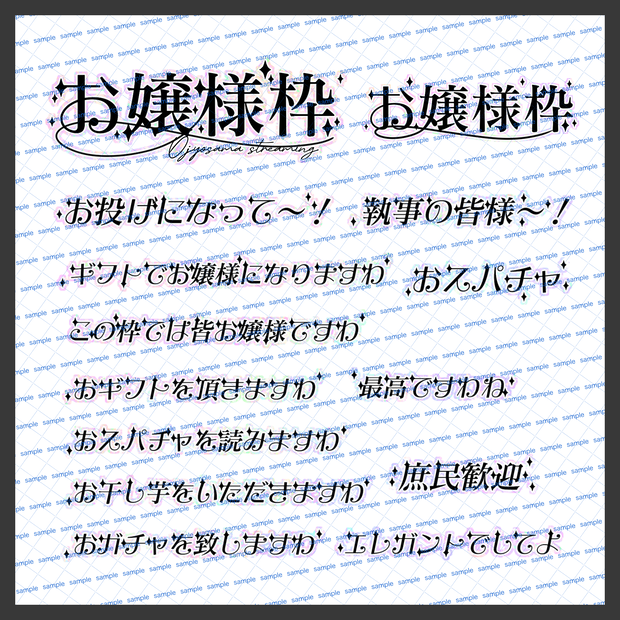 お嬢様枠
Ojyosama streaming
お嬢様枠
お投げになって〜!
執事の皆様〜!
ギフトでお嬢様になりますわ
おスパチャ
この枠では皆お嬢様ですわ
おギフトを頂きますわ
最高ですわね
おスパチャを読みますわ
お干し芋をいただきますわ
庶民歓迎
おガチャを致しますわ
エレガントでしてよ
sample